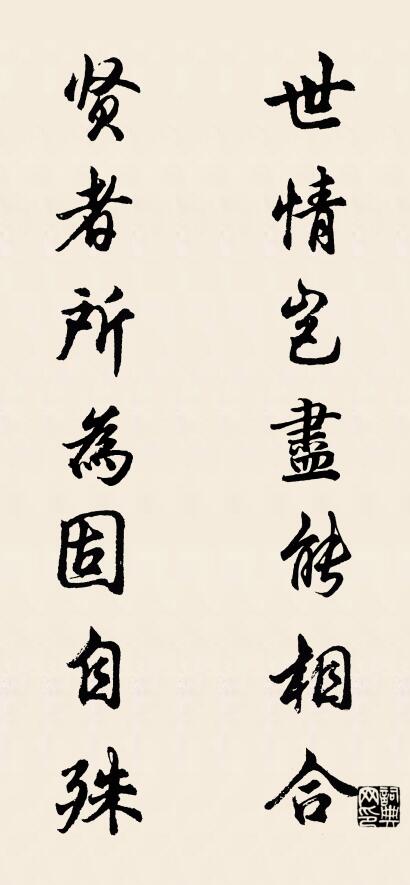 世情岂盡能相合
贤者所為固自殊
詞典网印